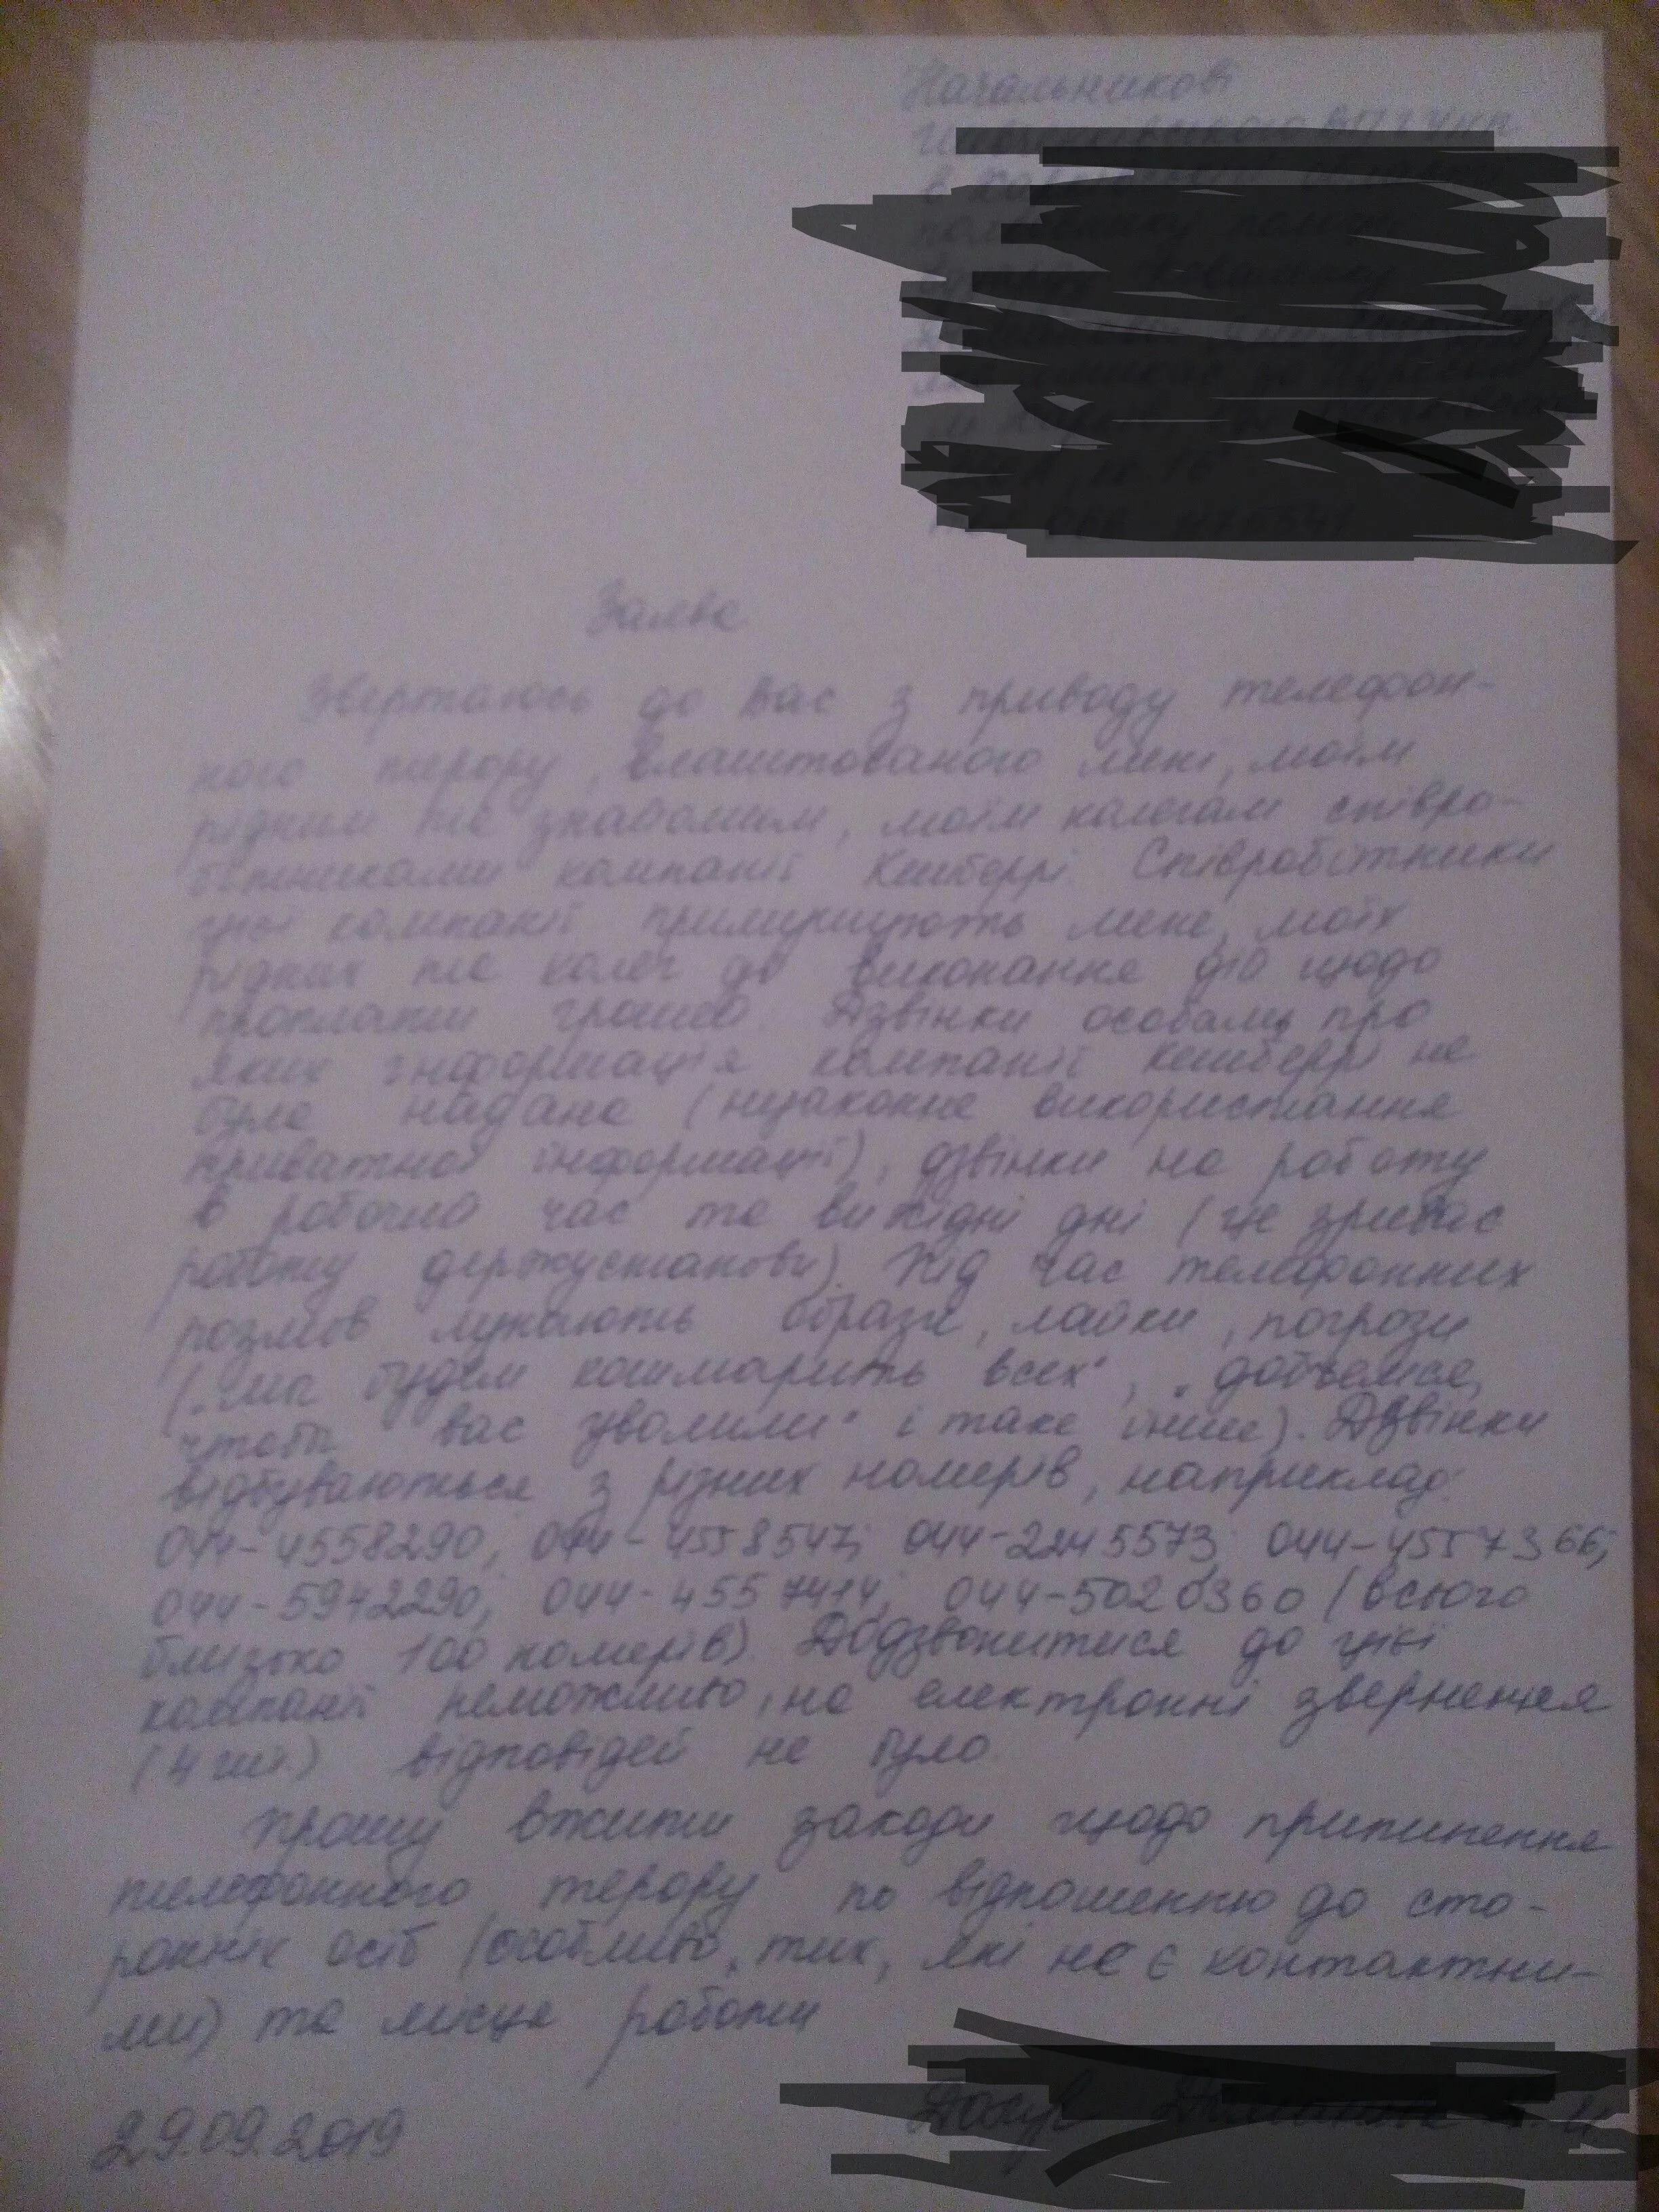 Начальникові
Заява
Звертаюсь до Вас з приводу телефон-
ного терору, влаштованого мені, моїм
рідним та знайомим, моїм колегам співро-
бітниками компанії Кешберрі. Співробітники
цієї компанії примушують мене, моїх
рідних та колег до виконання дій щодо
проплати грошей. Дзвінки особам, про
яких інформація компанії Кешберрі не
була надана (незаконне використання
приватної інформації), дзвінки на роботу
в робочий час та вихідні дні (це зриває
роботу держустанови). Під час телефонних
розмов лунають образи, лайки, погрози
(„мы будем кошмарить всех", „добьемся,
чтобы вас уволили" і таке інше). Дзвінки
відбуваються з різних номерів, наприклад:
044-4558290; 044-4558547; 044-2245573; 044-4557366;
044-5942290; 044-4557414; 044-5020360 (всього
близько 100 номерів). Додзвонитися до цієї
компанії неможливо, на електронні звернення
(4 шт.) відповідей не було.
Прошу вжити заходи щодо припинення
телефонного терору по відношенню до сто-
ронніх осіб (особливо, тих, які не є контактни-
ми) та місця роботи
29.09.2019